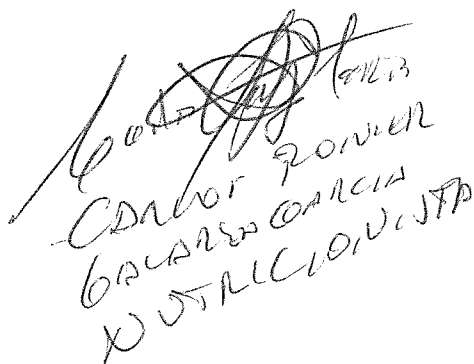 CARLOS ROINER
GALARZA GARCIA
NUTRICIONISTA